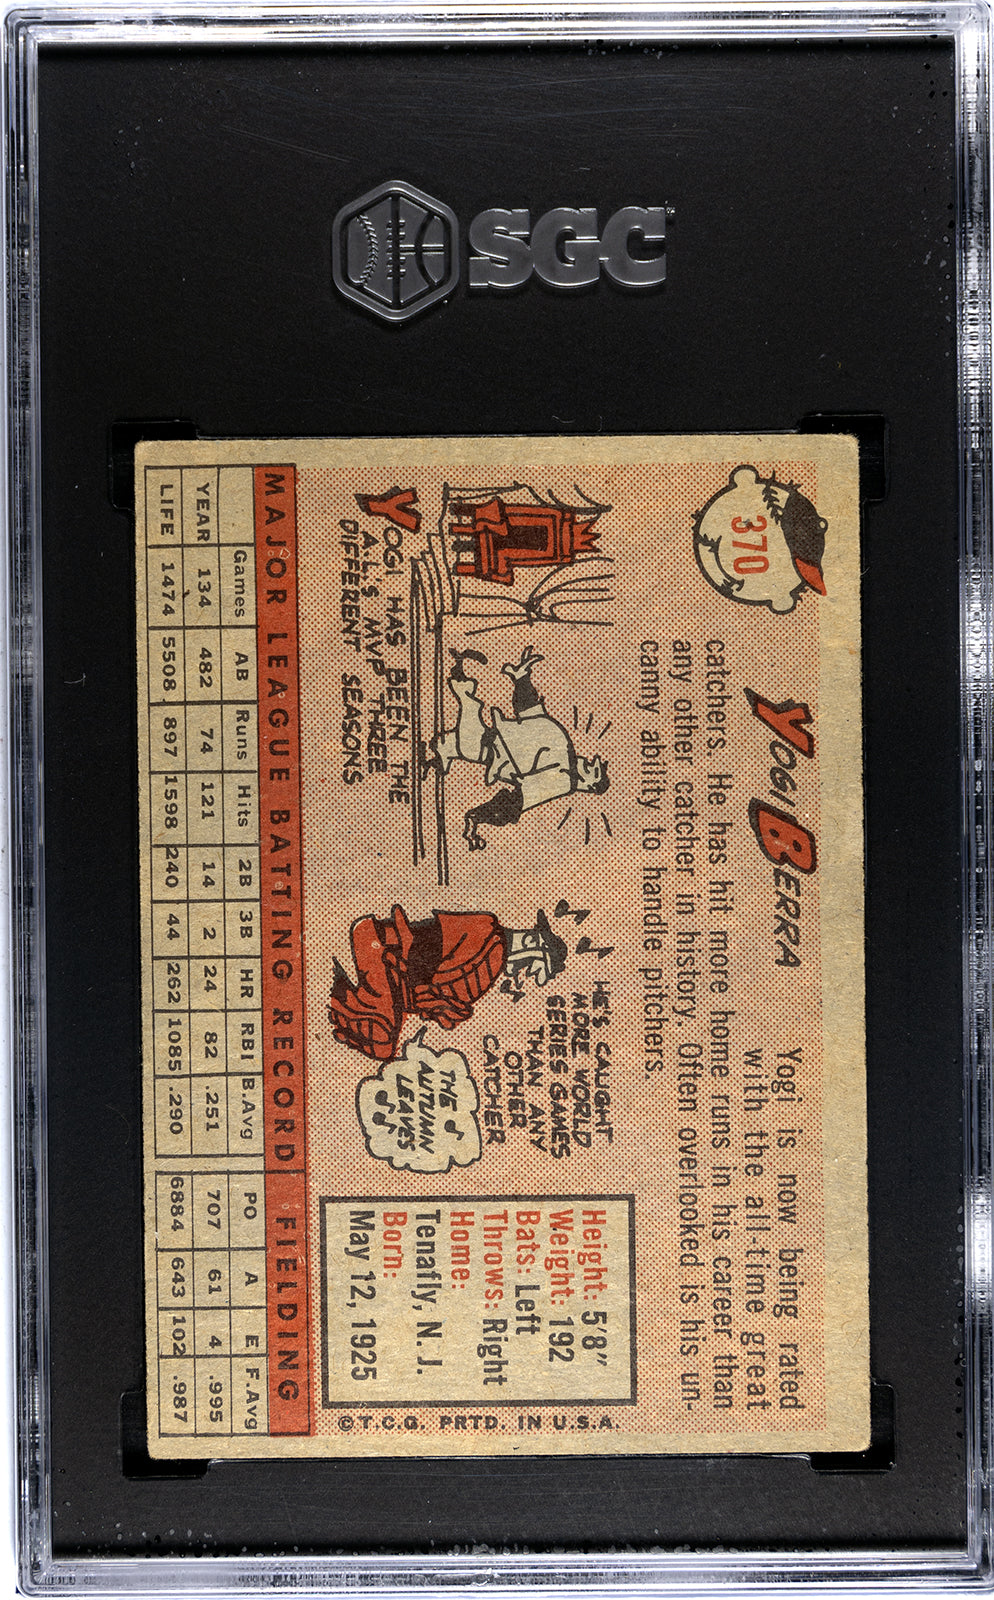 SGC
370
YOGI BERRA
Yogi is now being rated
with the all-time great
catchers. He has hit more home runs in his career than
any other catcher in history. Often overlooked is his un-
canny ability to handle pitchers.
YOGI HAS BEEN THE
A.L.'S MVP THREE
DIFFERENT SEASONS
HE'S CAUGHT
MORE WORLD
SERIES GAMES
THAN ANY
OTHER
CATCHER
THE
AUTUMN
LEAVES
Height: 5'8"
Weight: 192
Bats: Left
Throws: Right
Home:
Tenafly, N. J.
Born:
May 12, 1925
©T.C.G. PRTD. IN U.S.A.
MAJOR LEAGUE BATTING RECORD FIELDING
Games AB Runs Hits 2B 3B HR RBI B.Avg PO A E F.Avg
YEAR 134 482 74 121 14 2 24 82 .251 707 61 4 .995
LIFE 1474 5508 897 1598 240 44 262 1085 .290 6884 643 102 .987